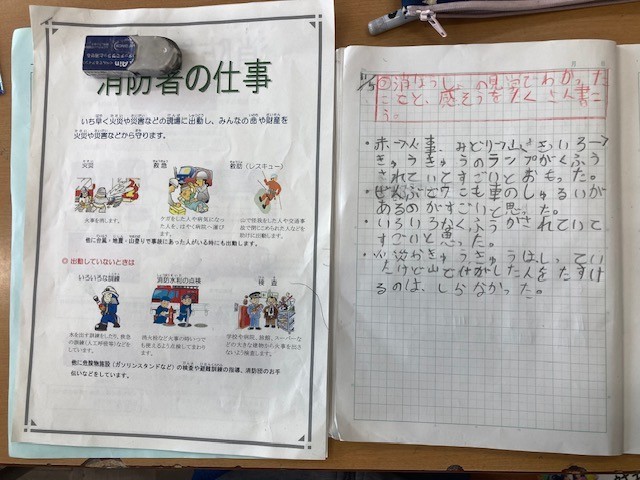 消防署の仕事
いち早く火災や災害などの現場に出動し、みんなの命や財産を
火災や災害などから守ります。
火災
救急
救助（レスキュー）
火事を消します。
ケガをした人や病気になっ
た人を、はやく病院へ運び
ます。
山で怪我をした人や交通事
故で閉じこめられた人などを
助けに出動します。
他に台風・地震・山登りで事故にあった人がいる時にも出動します。
◎ 出動していないときは
いろいろな訓練
消防水利の点検
検査
水を出す訓練をしたり、救急
の訓練（人工呼吸等）などを
しています。
消火栓など火事の時いつで
も使えるよう点検してまわり
ます。
学校や病院、旅館、スーパーな
どの大きな建物から火事を出さ
ないよう検査します。
他に危険物施設（ガソリンスタンドなど）の検査や避難訓練の指導、消防団のお手
伝いなどをしています。
消ぼうしょの見学でわかった
ことと、感そうをたくさん書こ
う。
・赤→火事、みどり→山、きいろ→
きゅうきゅうのランプがくふう
されていてすごいとおもった。
・ぜんぶとても車のしゅるいが
あるのがすごいと思った。
・いろいろなくふうがされていて
すごいと思った。
・火災かきゅうきゅうはしってい
たけど山でけがした人をたすけ
るのは、しらなかった。